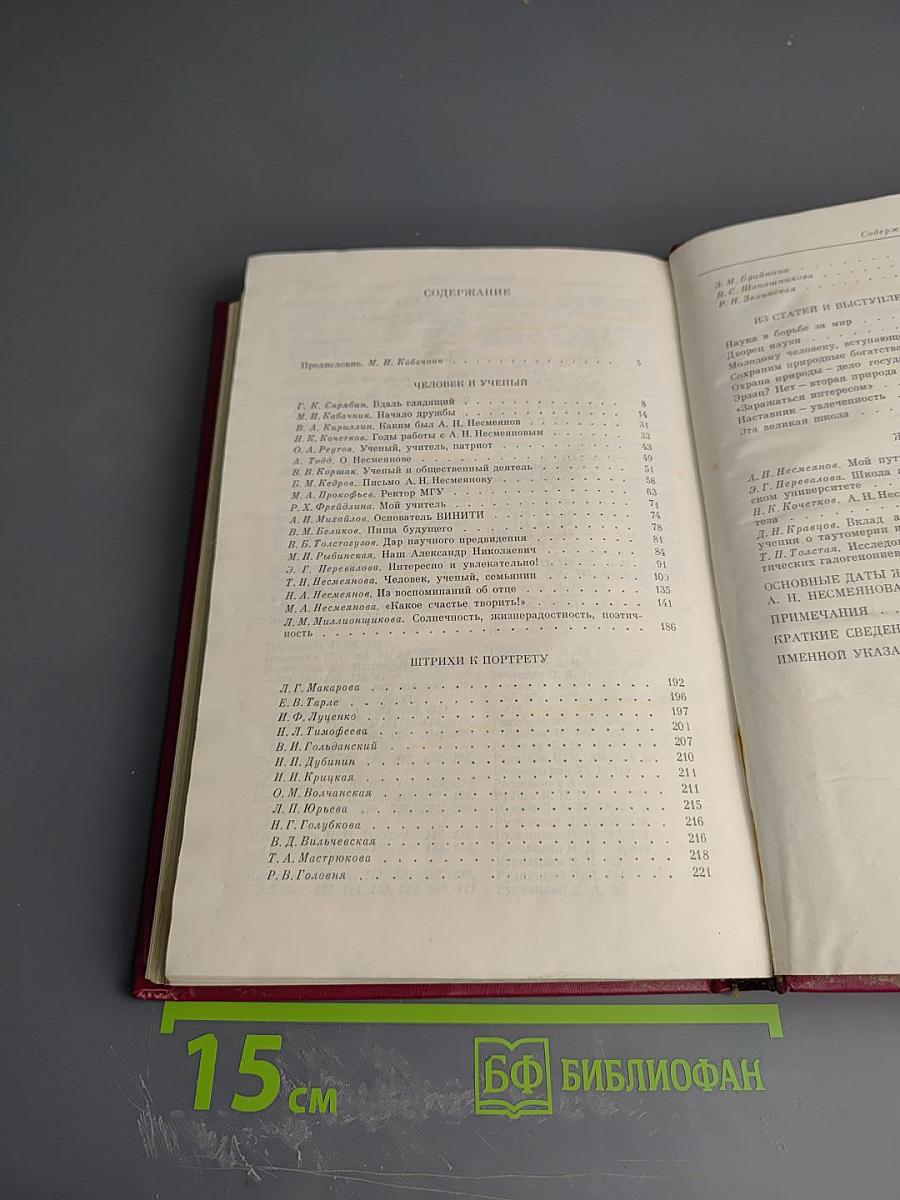 СОДЕРЖАНИЕ
Предисловие. М. И. Кабачник . . . . . . . . . . . . . . 5
ЧЕЛОВЕК И УЧЕНЫЙ
Г. К. Скрябин. Вдаль глядящий . . . . . . . . . . . . 8
М. И. Кабачник. Начало дружбы . . . . . . . . . . . . 14
В. А. Кириллин. Каким был А. Н. Несмеянов . . . . . . . . 31
Н. К. Кочетков. Годы работы с А. Н. Несмеяновым . . . . . . 33
О. А. Реутов. Ученый, учитель, патриот . . . . . . . . . . 43
А. Тодд. О Несмеянове . . . . . . . . . . . . . . 49
В. В. Коршак. Ученый и общественный деятель . . . . . . . 51
Б. М. Кедров. Письмо А. Н. Несмеянову . . . . . . . . . 58
М. А. Прокофьев. Ректор МГУ . . . . . . . . . . . . 63
Р. Х. Фрейдлина. Мой учитель . . . . . . . . . . . . 71
А. И. Михайлов. Основатель ВИНИТИ . . . . . . . . . . 74
В. М. Беликов. Пища будущего . . . . . . . . . . . . 78
В. Б. Толстогузов. Дар научного предвидения . . . . . . . . 81
М. И. Рыбинская. Наш Александр Николаевич . . . . . . . . 84
Э. Г. Перевалова. Интересно и увлекательно! . . . . . . . . 91
Т. Н. Несмеянова. Человек, ученый, семьянин . . . . . . . . 100
Н. А. Несмеянов. Из воспоминаний об отце . . . . . . . . . 135
М. А. Несмеянова. «Какое счастье творить!» . . . . . . . . . 141
Л. М. Миллионщикова. Солнечность, жизнерадостность, поэтич-
ность . . . . . . . . . . . . . . . . . . . . 186
ШТРИХИ К ПОРТРЕТУ
Л. Г. Макарова . . . . . . . . . . . . . . . . . 192
Е. В. Тарле . . . . . . . . . . . . . . . . . . 196
И. Ф. Луценко . . . . . . . . . . . . . . . . . 197
Н. Л. Тимофеева . . . . . . . . . . . . . . . . . 201
В. И. Гольданский . . . . . . . . . . . . . . . . 207
Н. П. Дубинин . . . . . . . . . . . . . . . . . 210
И. И. Крицкая . . . . . . . . . . . . . . . . . 211
О. М. Волчанская . . . . . . . . . . . . . . . . 211
Л. П. Юрьева . . . . . . . . . . . . . . . . . 215
Н. Г. Голубкова . . . . . . . . . . . . . . . . . 216
В. Д. Вильчевская . . . . . . . . . . . . . . . . 216
Т. А. Мастрюкова . . . . . . . . . . . . . . . . 218
Р. В. Головня . . . . . . . . . . . . . . . . . 221
Содерж
Э. М. Брайнина . . . . . . .
Н. С. Шапашникова . . . . . .
Р. Н. Зелинская . . . . . . .
ИЗ СТАТЕЙ И ВЫСТУПЛЕ
Наука в борьбе за мир . . .
Дворец науки . . . . . .
Молодому человеку, вступающ
Сохраним природные богатства
Охрана природы — дело госуд
Эрзац? Нет — вторая природа
«Заражаться интересом» . .
Наставник — увлеченность .
Эта великая школа . . .
А. Н. Несмеянов. Мой пут
Э. Г. Перевалова. Школа а
ском университете . . .
Н. К. Кочетков. А. Н. Нес
теза . . . . . .
Д. Н. Кравцов. Вклад а
учения о таутомерии и
Т. П. Толстая. Исследо
тических галогенониев
ОСНОВНЫЕ ДАТЫ Ж
А. Н. НЕСМЕЯНОВА
ПРИМЕЧАНИЯ . .
КРАТКИЕ СВЕДЕН
ИМЕННОЙ УКАЗА
15 см
БФ БИБЛИОФАН